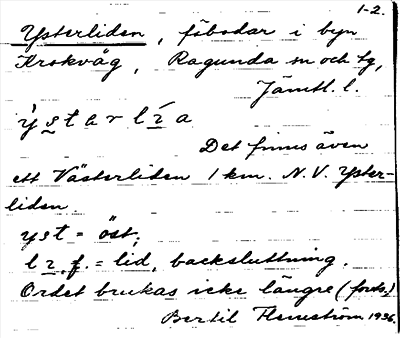 1-2.
Ysterliden, fäbodar i byn
Krokvåg, Ragunda sn och tg,
Jämtl. l.
ỳstarlía
Det finns även
ett Västerliden 1 km. N.V. Yster-
liden.
yst = öst;
lı, f. = lid, backsluttning.
Ordet brukas icke längre (forts.)
Bertil Flemström 1936.